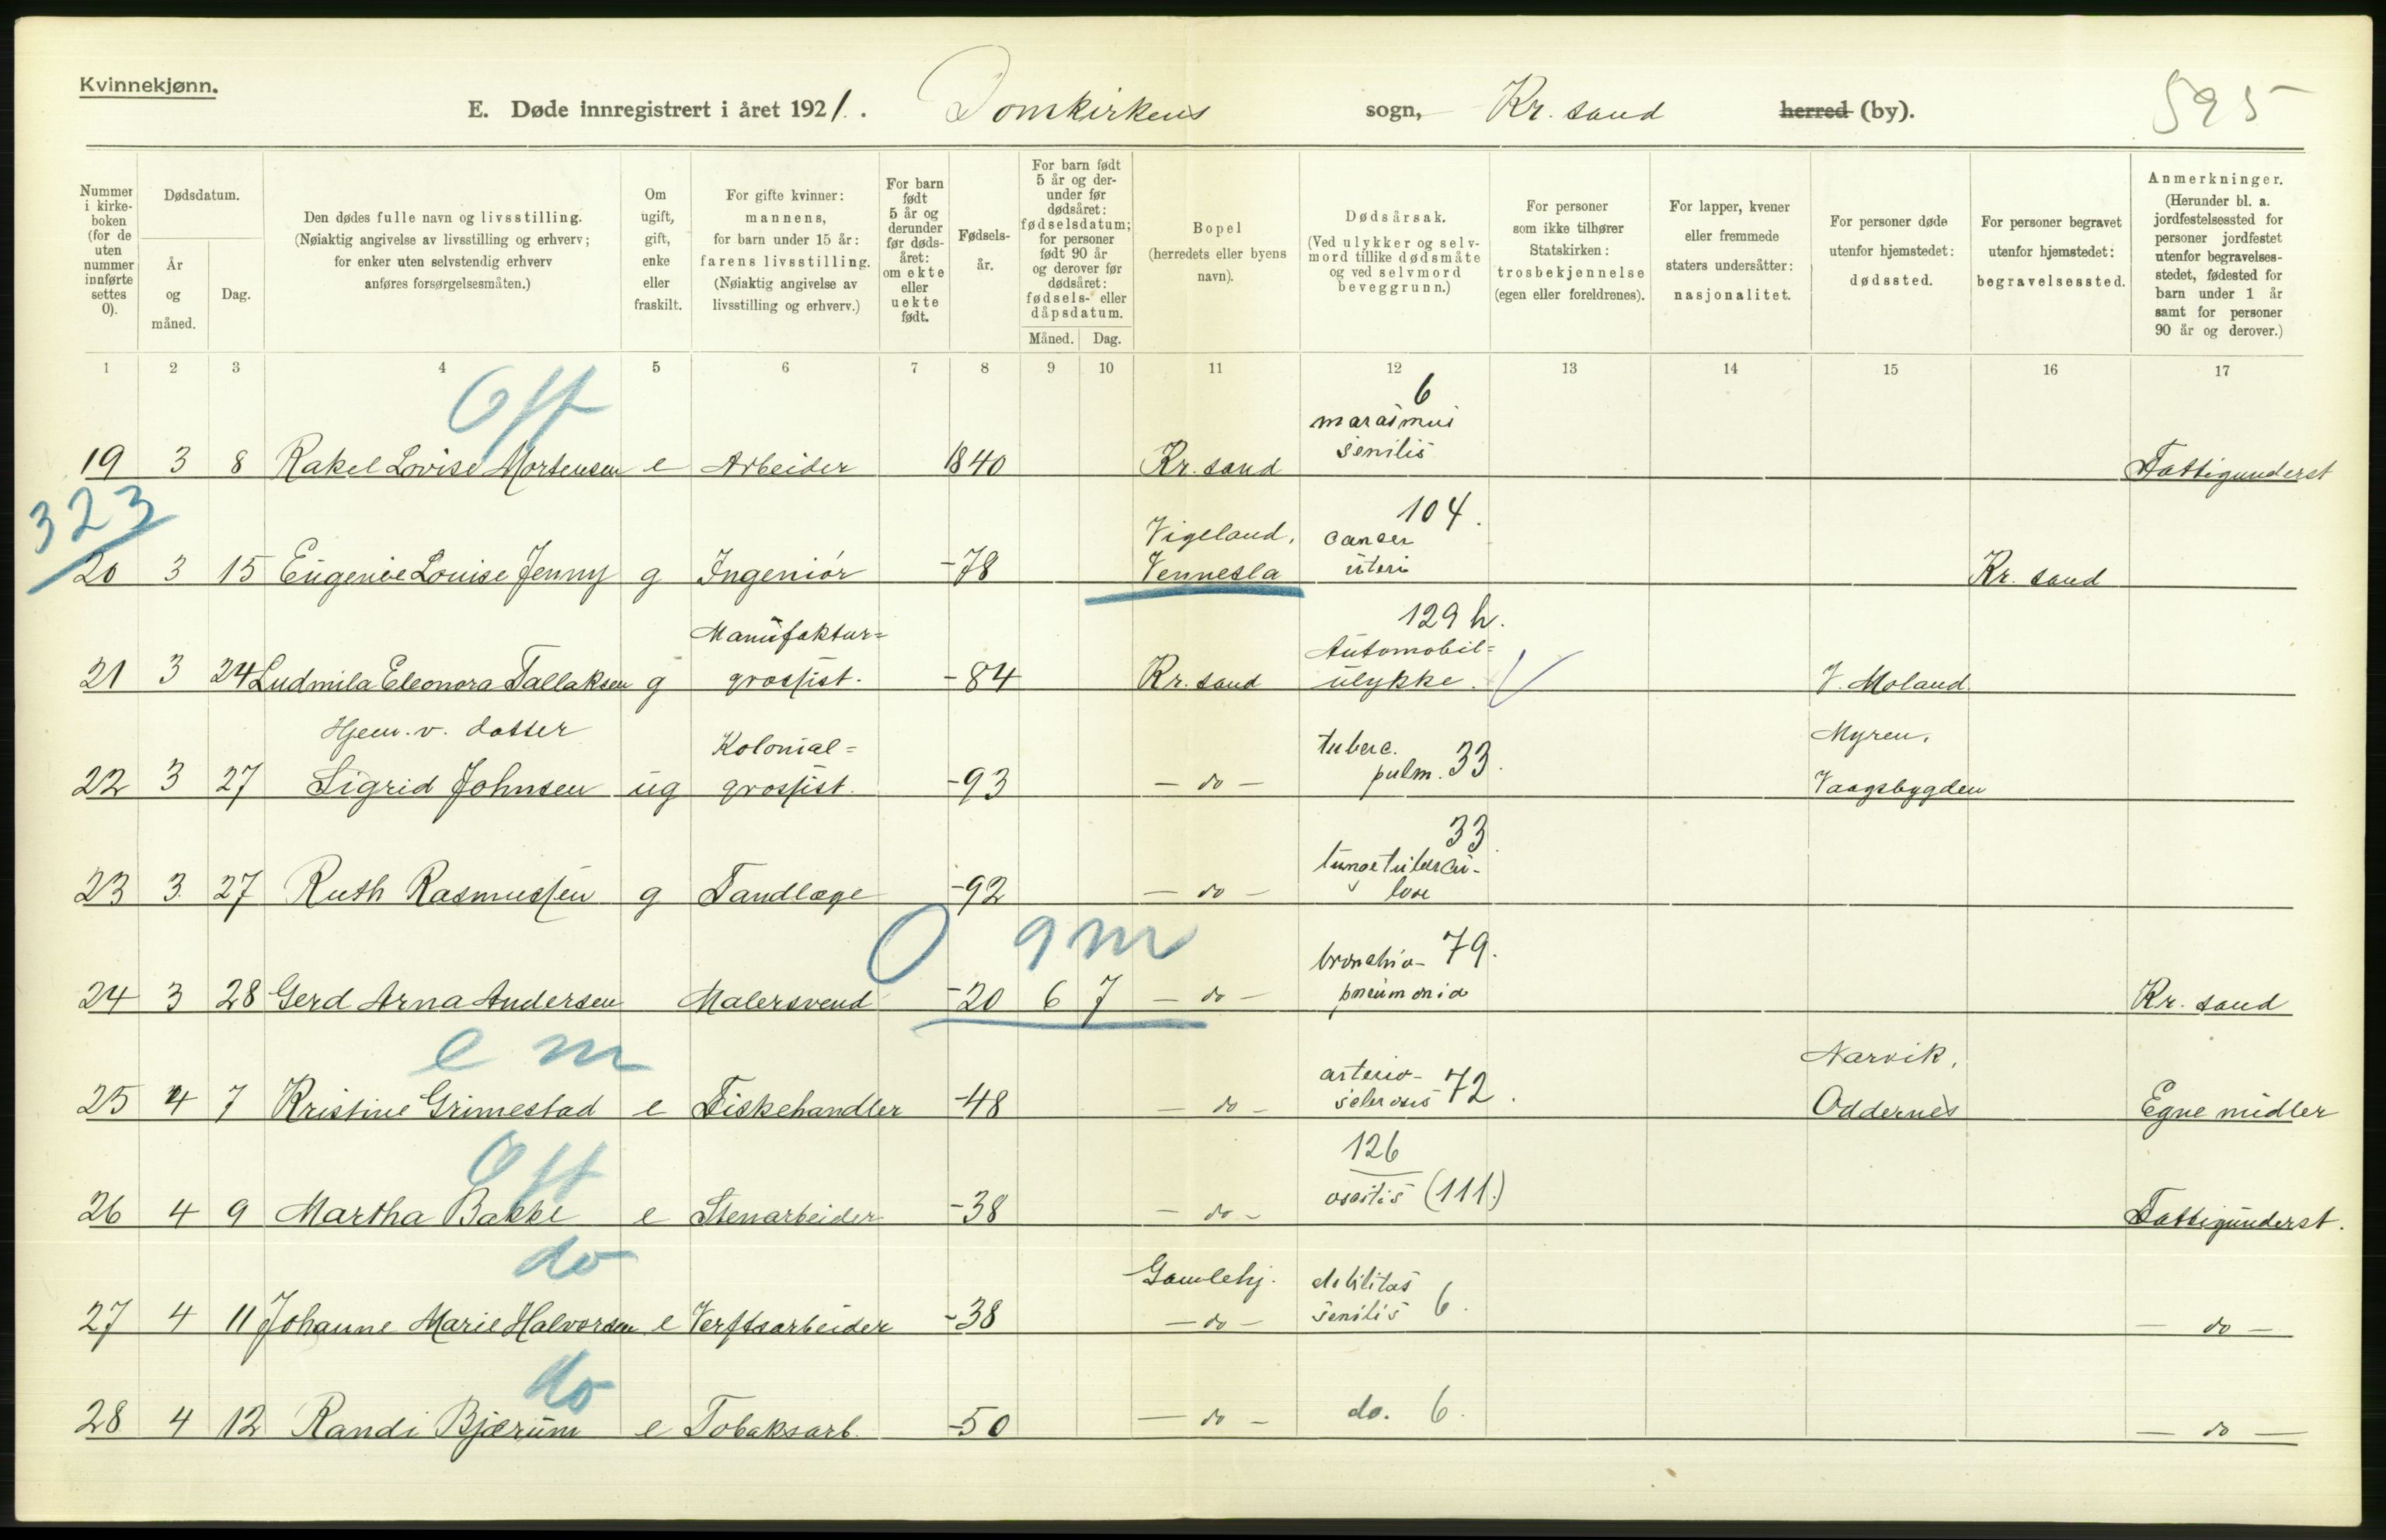 Kvinnekjønn.
E. Døde innregistrert i året 1921. Domkirkens sogn, Kr. sand herred (by). 595
Nummer i kirke-boken (for de uten nummer innførte settes 0).
Dødsdatum.
År og måned.
Dag.
Den dødes fulle navn og livsstilling. (Nøiaktig angivelse av livsstilling og erhverv; for enker uten selvstendig erhverv anføres forsørgelsesmåten.)
Om ugift, gift, enke eller fraskilt.
For gifte kvinner: mannens, for barn under 15 år: farens livsstilling. (Nøiaktig angivelse av livsstilling og erhverv.)
For barn født 5 år og derunder før døds-året: om ekte eller uekte født.
Fødsels-år.
For barn født 5 år og der-under før dødsåret: fødselsdatum; for personer født 90 år og derover før dødsåret: fødsels- eller dåpsdatum.
Måned. Dag.
Bopel (herredets eller byens navn).
Dødsårsak. (Ved ulykker og selv-mord tillike dødsmåte og ved selvmord beveggrunn.)
For personer som ikke tilhører Statskirken: trosbekjennelse (egen eller foreldrenes).
For lapper, kvener eller fremmede staters undersåtter: nasjonalitet.
For personer døde utenfor hjemstedet: dødssted.
For personer begravet utenfor hjemstedet: begravelsessted.
Anmerkninger. (Herunder bl. a. jordfestelsessted for personer jordfestet utenfor begravelses-stedet, fødested for barn under 1 år samt for personer 90 år og derover.)
1 2 3 4 5 6 7 8 9 10 11 12 13 14 15 16 17
Off 6
marasmus
senilis
19 3 8 Rakel Lovise Mortensen e Arbeider 1840 Kr. sand Fattigunderst
323
104.
Vigeland, cancer
20 3 15 Eugenie Louise Jenny g Ingeniør -78 Vennesla uteri Kr. sand
129 h.
Manufaktur= Automobil=
21 3 24 Ludmila Eleonora Tallaksen g grossist. -84 Kr. sand ulykke. V. Moland
Hjem. v. datter Kolonial= tuberc. Myren,
22 3 27 Sigrid Johnsen ug grossist. -93 - do - pulm. 33. Vaagsbygden
33.
lungetuberku-
23 3 27 Ruth Rasmussen g Tandlæge -92 - do - lose
0 9 m
broncho- 79.
24 3 28 Gerd Arna Andersen Malersvend -20 6 7 - do - pneumonia Kr. sand
e m
arterio- Narvik,
25 4 7 Kristine Grimestad e Fiskehandler -48 - do - sclerosis 72. Oddernes Egne midler
Off 126
26 4 9 Martha Bakke e Stenarbeider -38 - do - ostitis (111.) Fattigunderst.
do
Gamlehj. debilitas
27 4 11 Johanne Marie Halvorsen e Verftsarbeider -38 - do - senilis 6. - do -
do
28 4 12 Randi Bjærum e Tobaksarb. -50 - do - do. 6. - do -